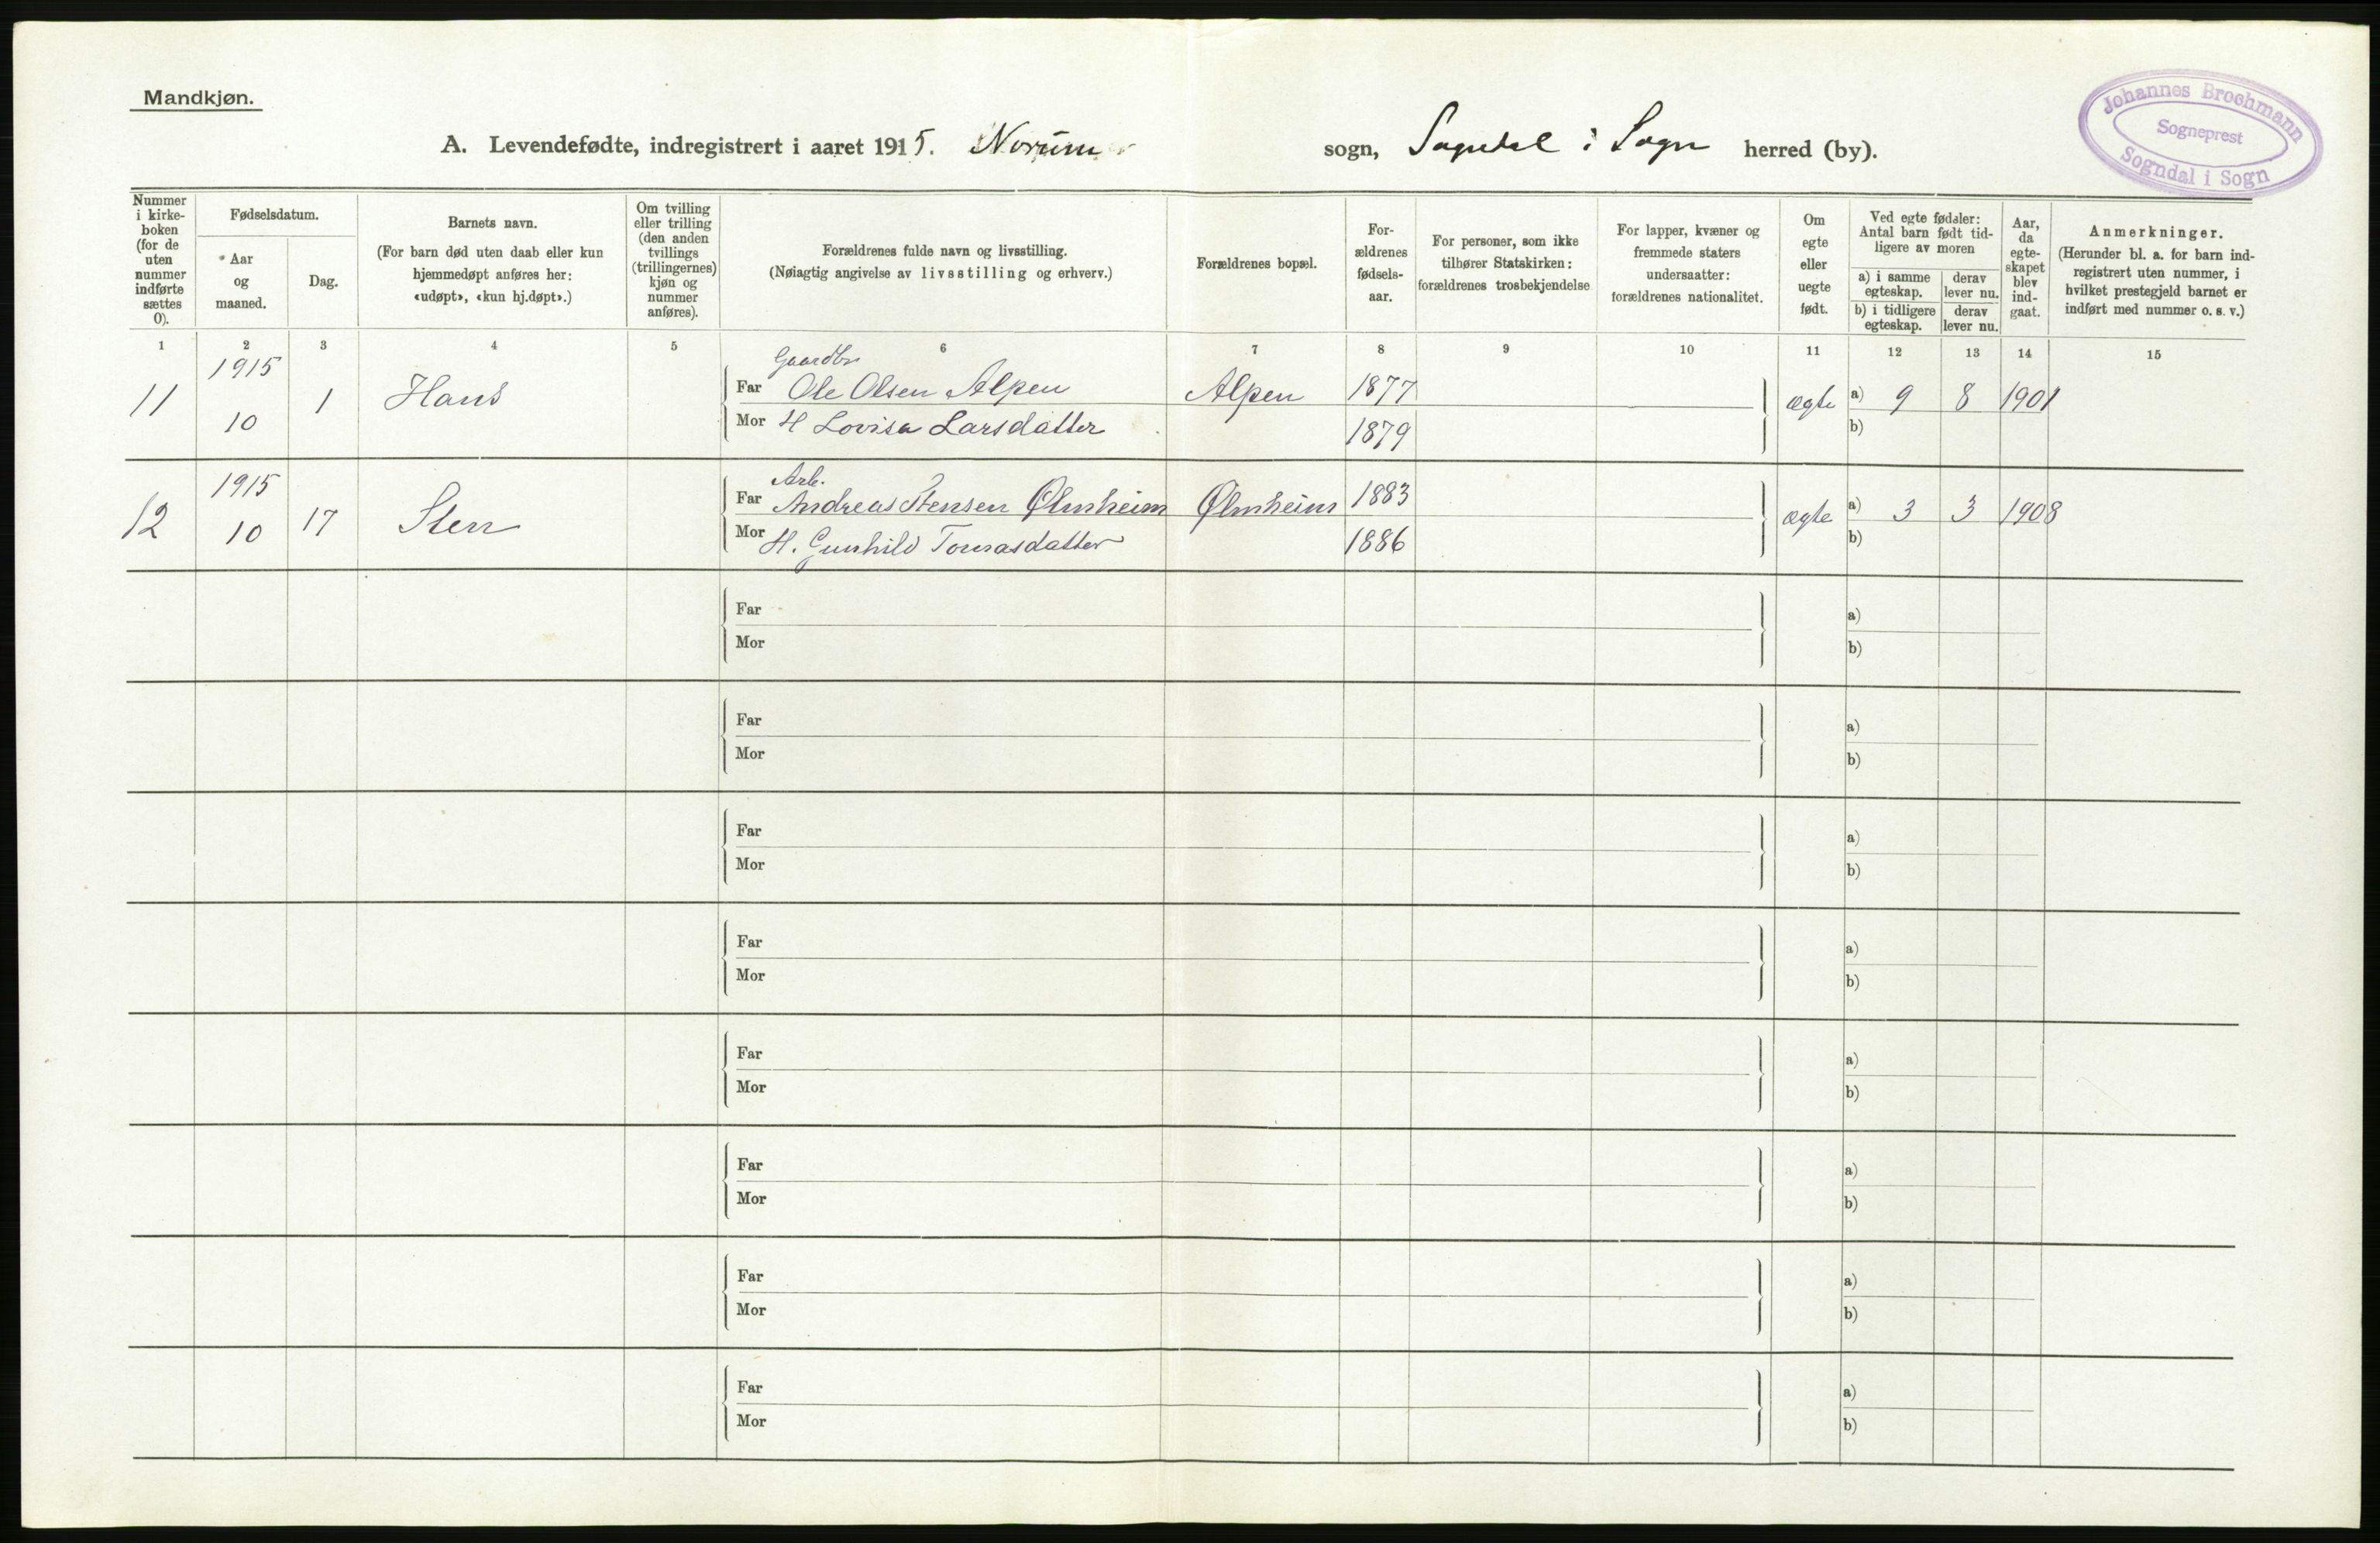 Mandkjøn.
A. Levendefødte, indregistrert i aaret 1915. Norum sogn, Sogndal i Sogn herred (by).
Johannes Brochmann
Sogneprest
Sogndal i Sogn
Nummer
i kirke-
boken
(for de
uten
nummer
indførte
sættes
0).
Fødselsdatum.
Aar
og
maaned.
Dag.
Barnets navn.
(For barn død uten daab eller kun
hjemmedøpt anføres her:
«udøpt», «kun hj.døpt».)
Om tvilling
eller trilling
(den anden
tvillings
(trillingernes)
kjøn og
nummer
anføres).
Forældrenes fulde navn og livsstilling.
(Nøiagtig angivelse av livsstilling og erhverv.)
Forældrenes bopæl.
For-
ældrenes
fødsels-
aar.
For personer, som ikke
tilhører Statskirken:
forældrenes trosbekjendelse
For lapper, kvæner og
fremmede staters
undersaatter:
forældrenes nationalitet.
Om
egte
eller
uegte
født.
Ved egte fødsler:
Antal barn født tid-
ligere av moren
a) i samme
egteskap.
derav
lever nu.
b) i tidligere
egteskap.
derav
lever nu.
Aar,
da
egte-
skapet
blev
ind-
gaat.
Anmerkninger.
(Herunder bl. a. for barn ind-
registrert uten nummer, i
hvilket prestegjeld barnet er
indført med nummer o. s. v.)
1 2 3 4 5 6 7 8 9 10 11 12 13 14 15
1915 Gaardbr
11 1 Hans Far Ole Olsen Alpen Alpen 1877 ægte a) 9 8 1901
10 Mor H Lovisa Larsdatter 1879 b)
1915 Arb.
12 17 Sten Far Andreas Stensen Ølmheim Ølmheim 1883 ægte a) 3 3 1908
10 Mor H. Gunhild Tomasdatter 1886 b)
Far a)
Mor b)
Far a)
Mor b)
Far a)
Mor b)
Far a)
Mor b)
Far a)
Mor b)
Far a)
Mor b)
Far a)
Mor b)
Far a)
Mor b)